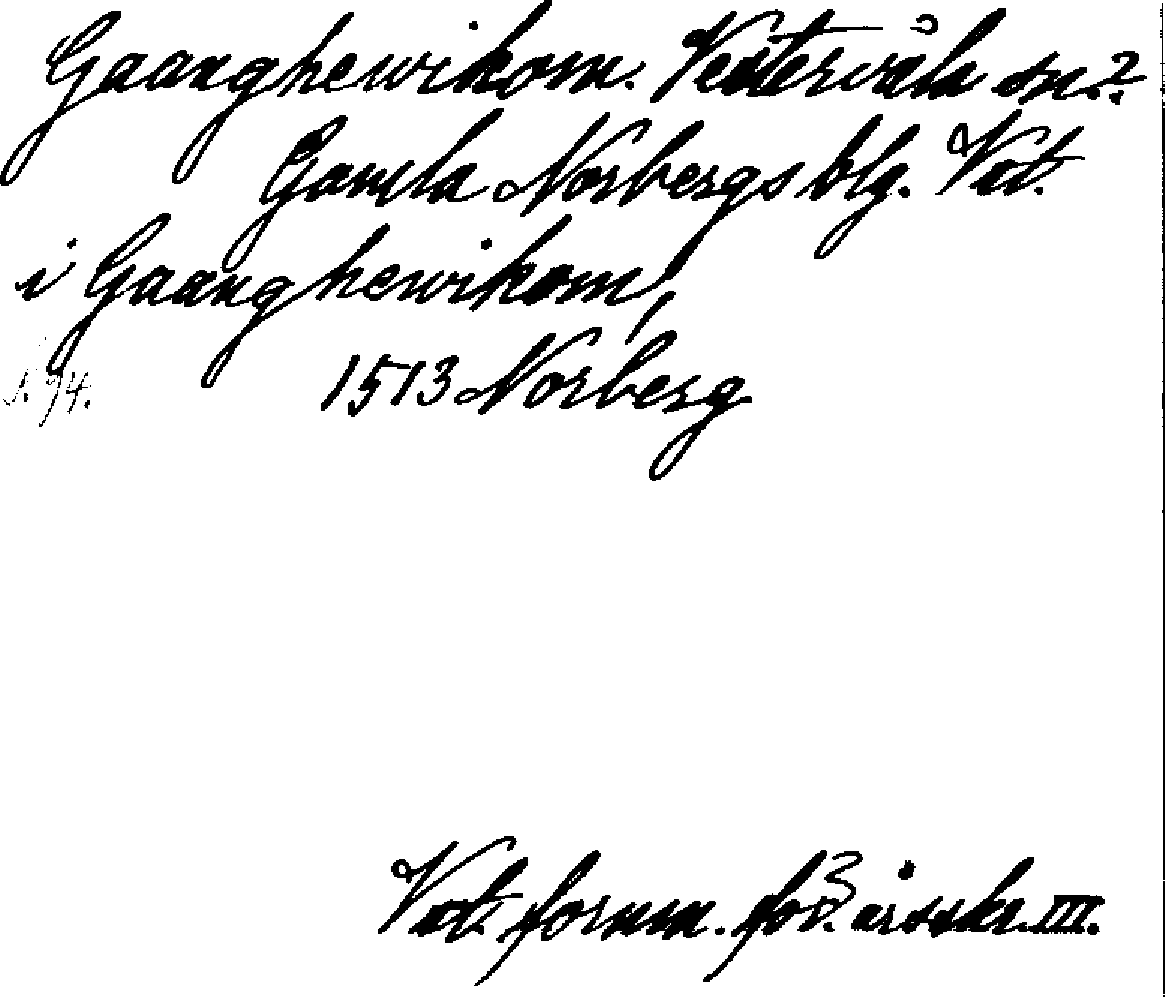 Gaanghewikom. Västervåla sn.?
Gamla Norbergs blg. Vstl.
i Gaanghewikom,
s. 74. 1513 Norberg
Vstl. fornm. för. årsskr. III.